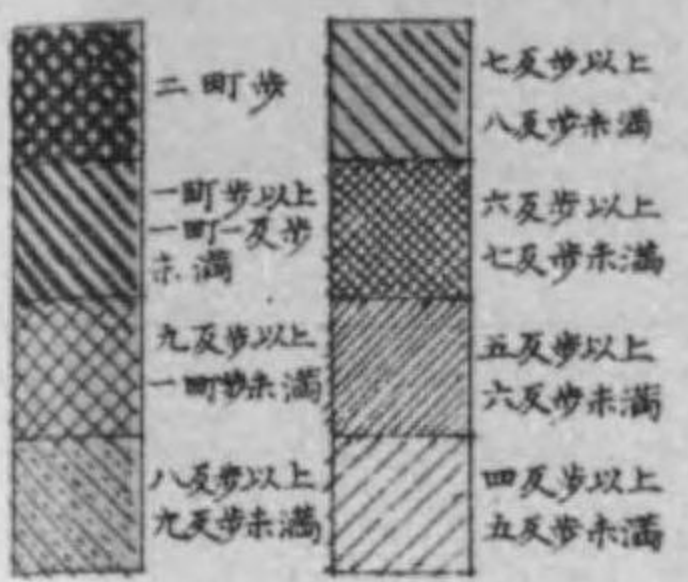 二町歩
一町歩以上
一町一反歩
未満
九反歩以上
一町歩未満
八反歩以上
九反歩未満
七反歩以上
八反歩未満
六反歩以上
七反歩未満
五反歩以上
六反歩未満
四反歩以上
五反歩未満